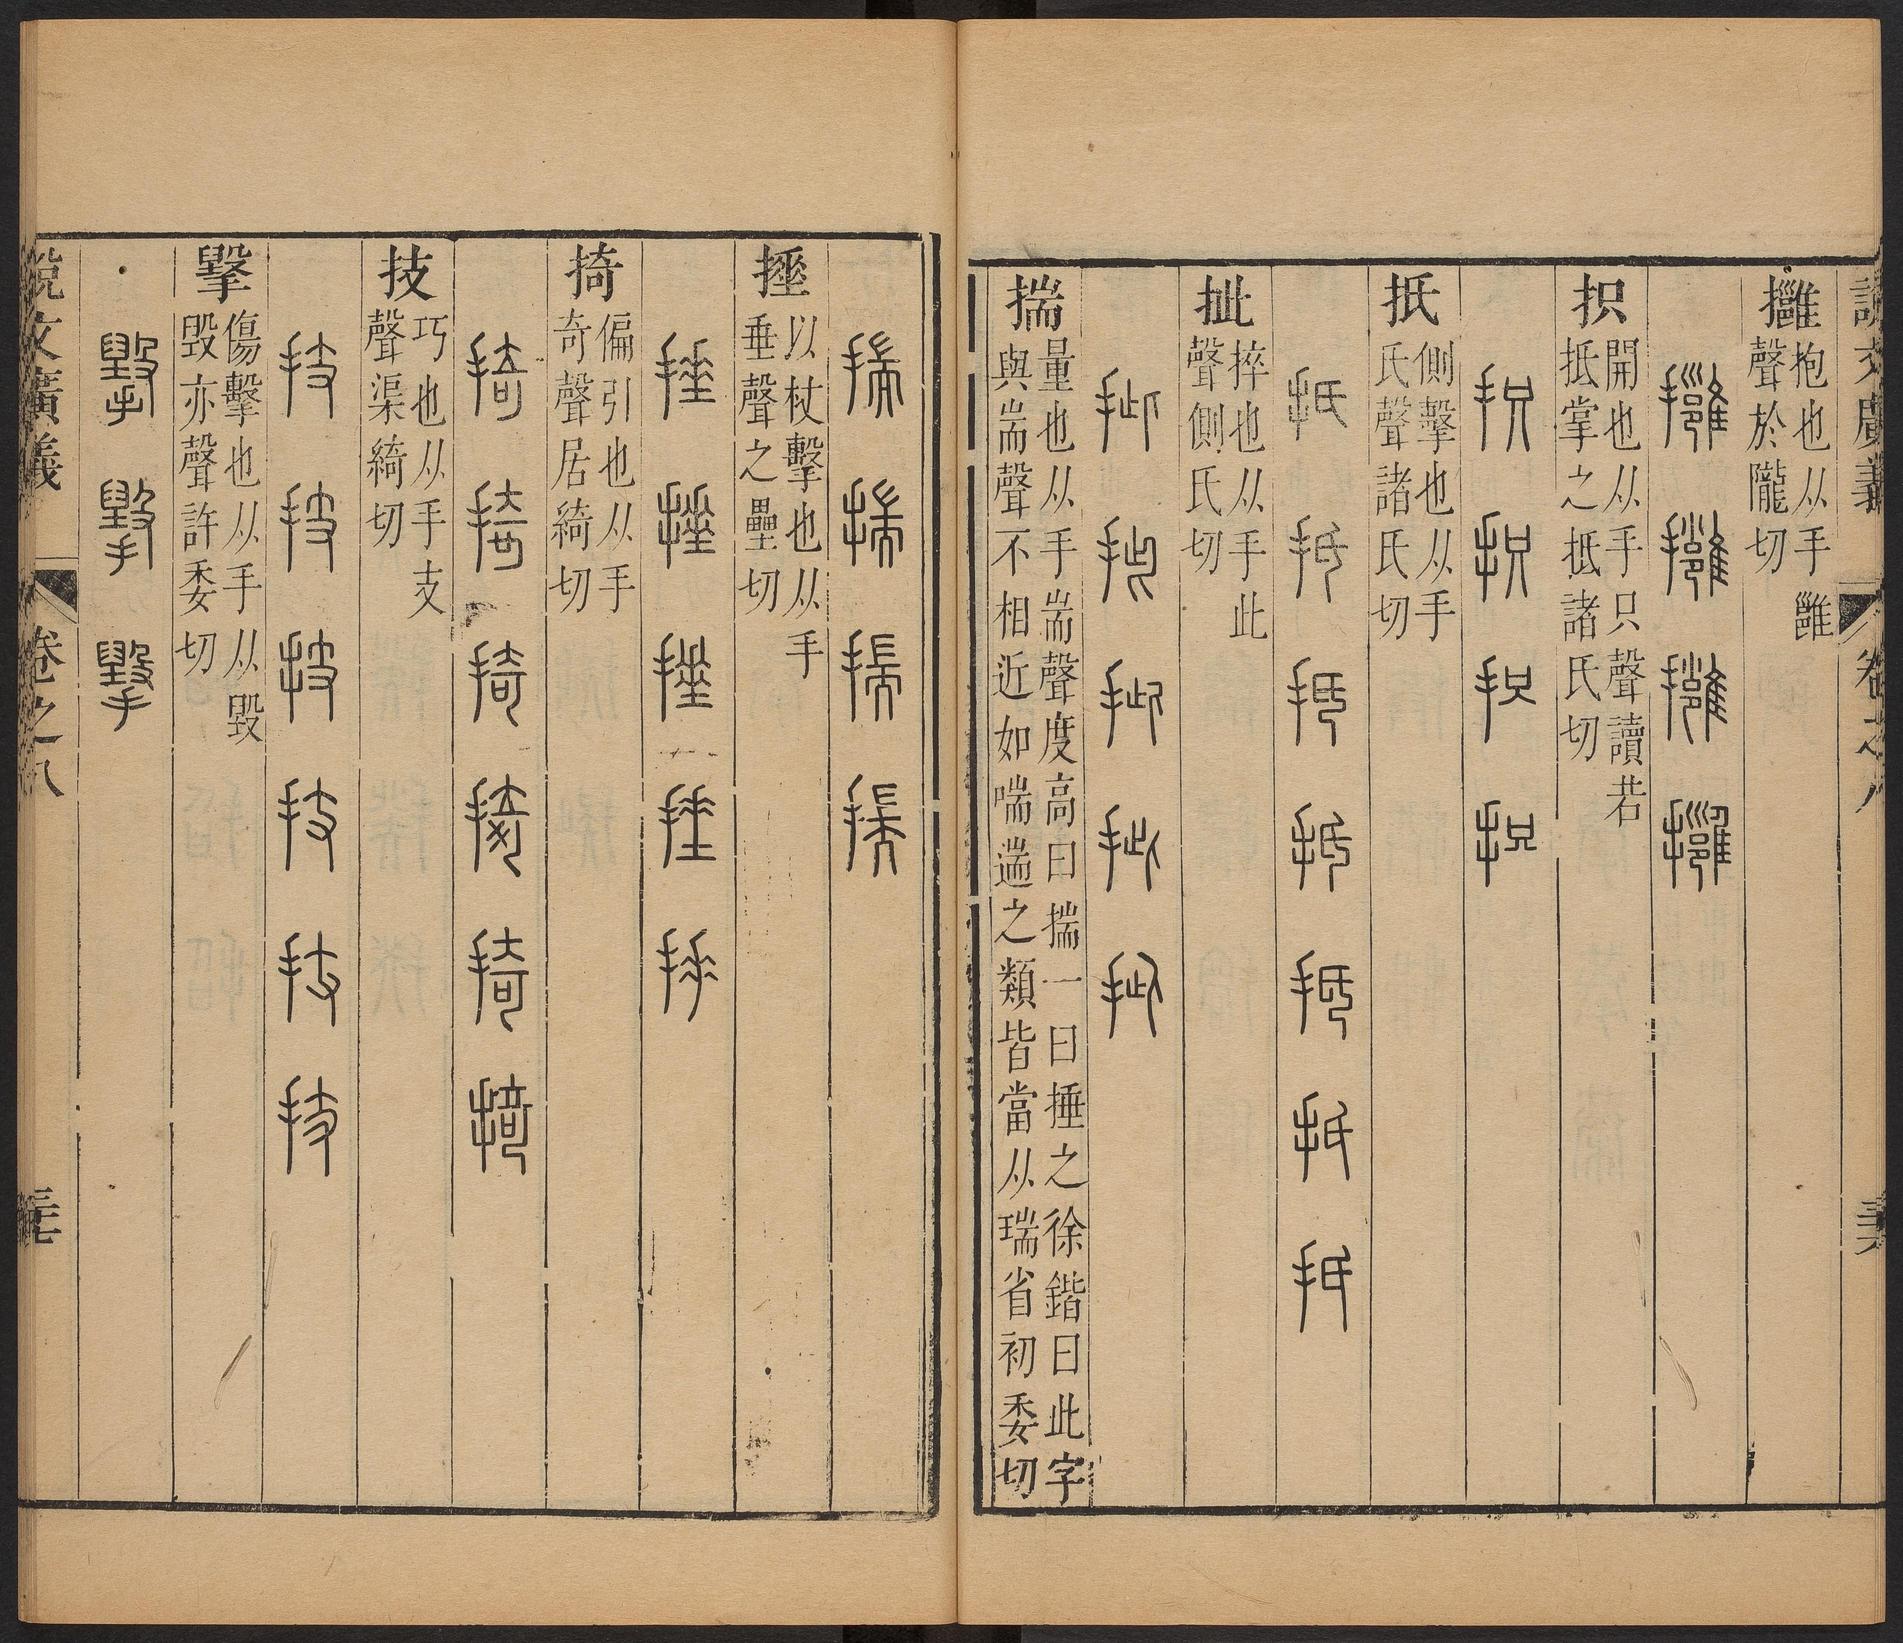 說文廣義 卷之八
𢹬
抱也从手雝
聲於隴切
𢹬 𢹬 𢹬 𢹬
抧
開也从手只聲讀若
抵掌之抵諸氏切
抧 抧 抧 抧
扺
側擊也从手
氏聲諸氏切
扺 扺 扺 扺 扺 扺 扺
㧗
捽也从手此
聲側氏切
㧗 㧗 㧗 㧗 㧗
揣
量也从手耑聲度高曰揣一曰捶之徐鍇曰此字
與耑聲不相近如喘遄之類皆當从瑞省初委切
揣 揣 揣 揣
捶
以杖擊也从手
垂聲之壘切
捶 捶 捶 捶 捶
掎
偏引也从手
奇聲居綺切
掎 掎 掎 掎 掎 掎
技
巧也从手支
聲渠綺切
技 技 技 技 技 技
㩓
傷擊也从手从毀
毀亦聲許委切
㩓 㩓 㩓
說文廣義 卷之八